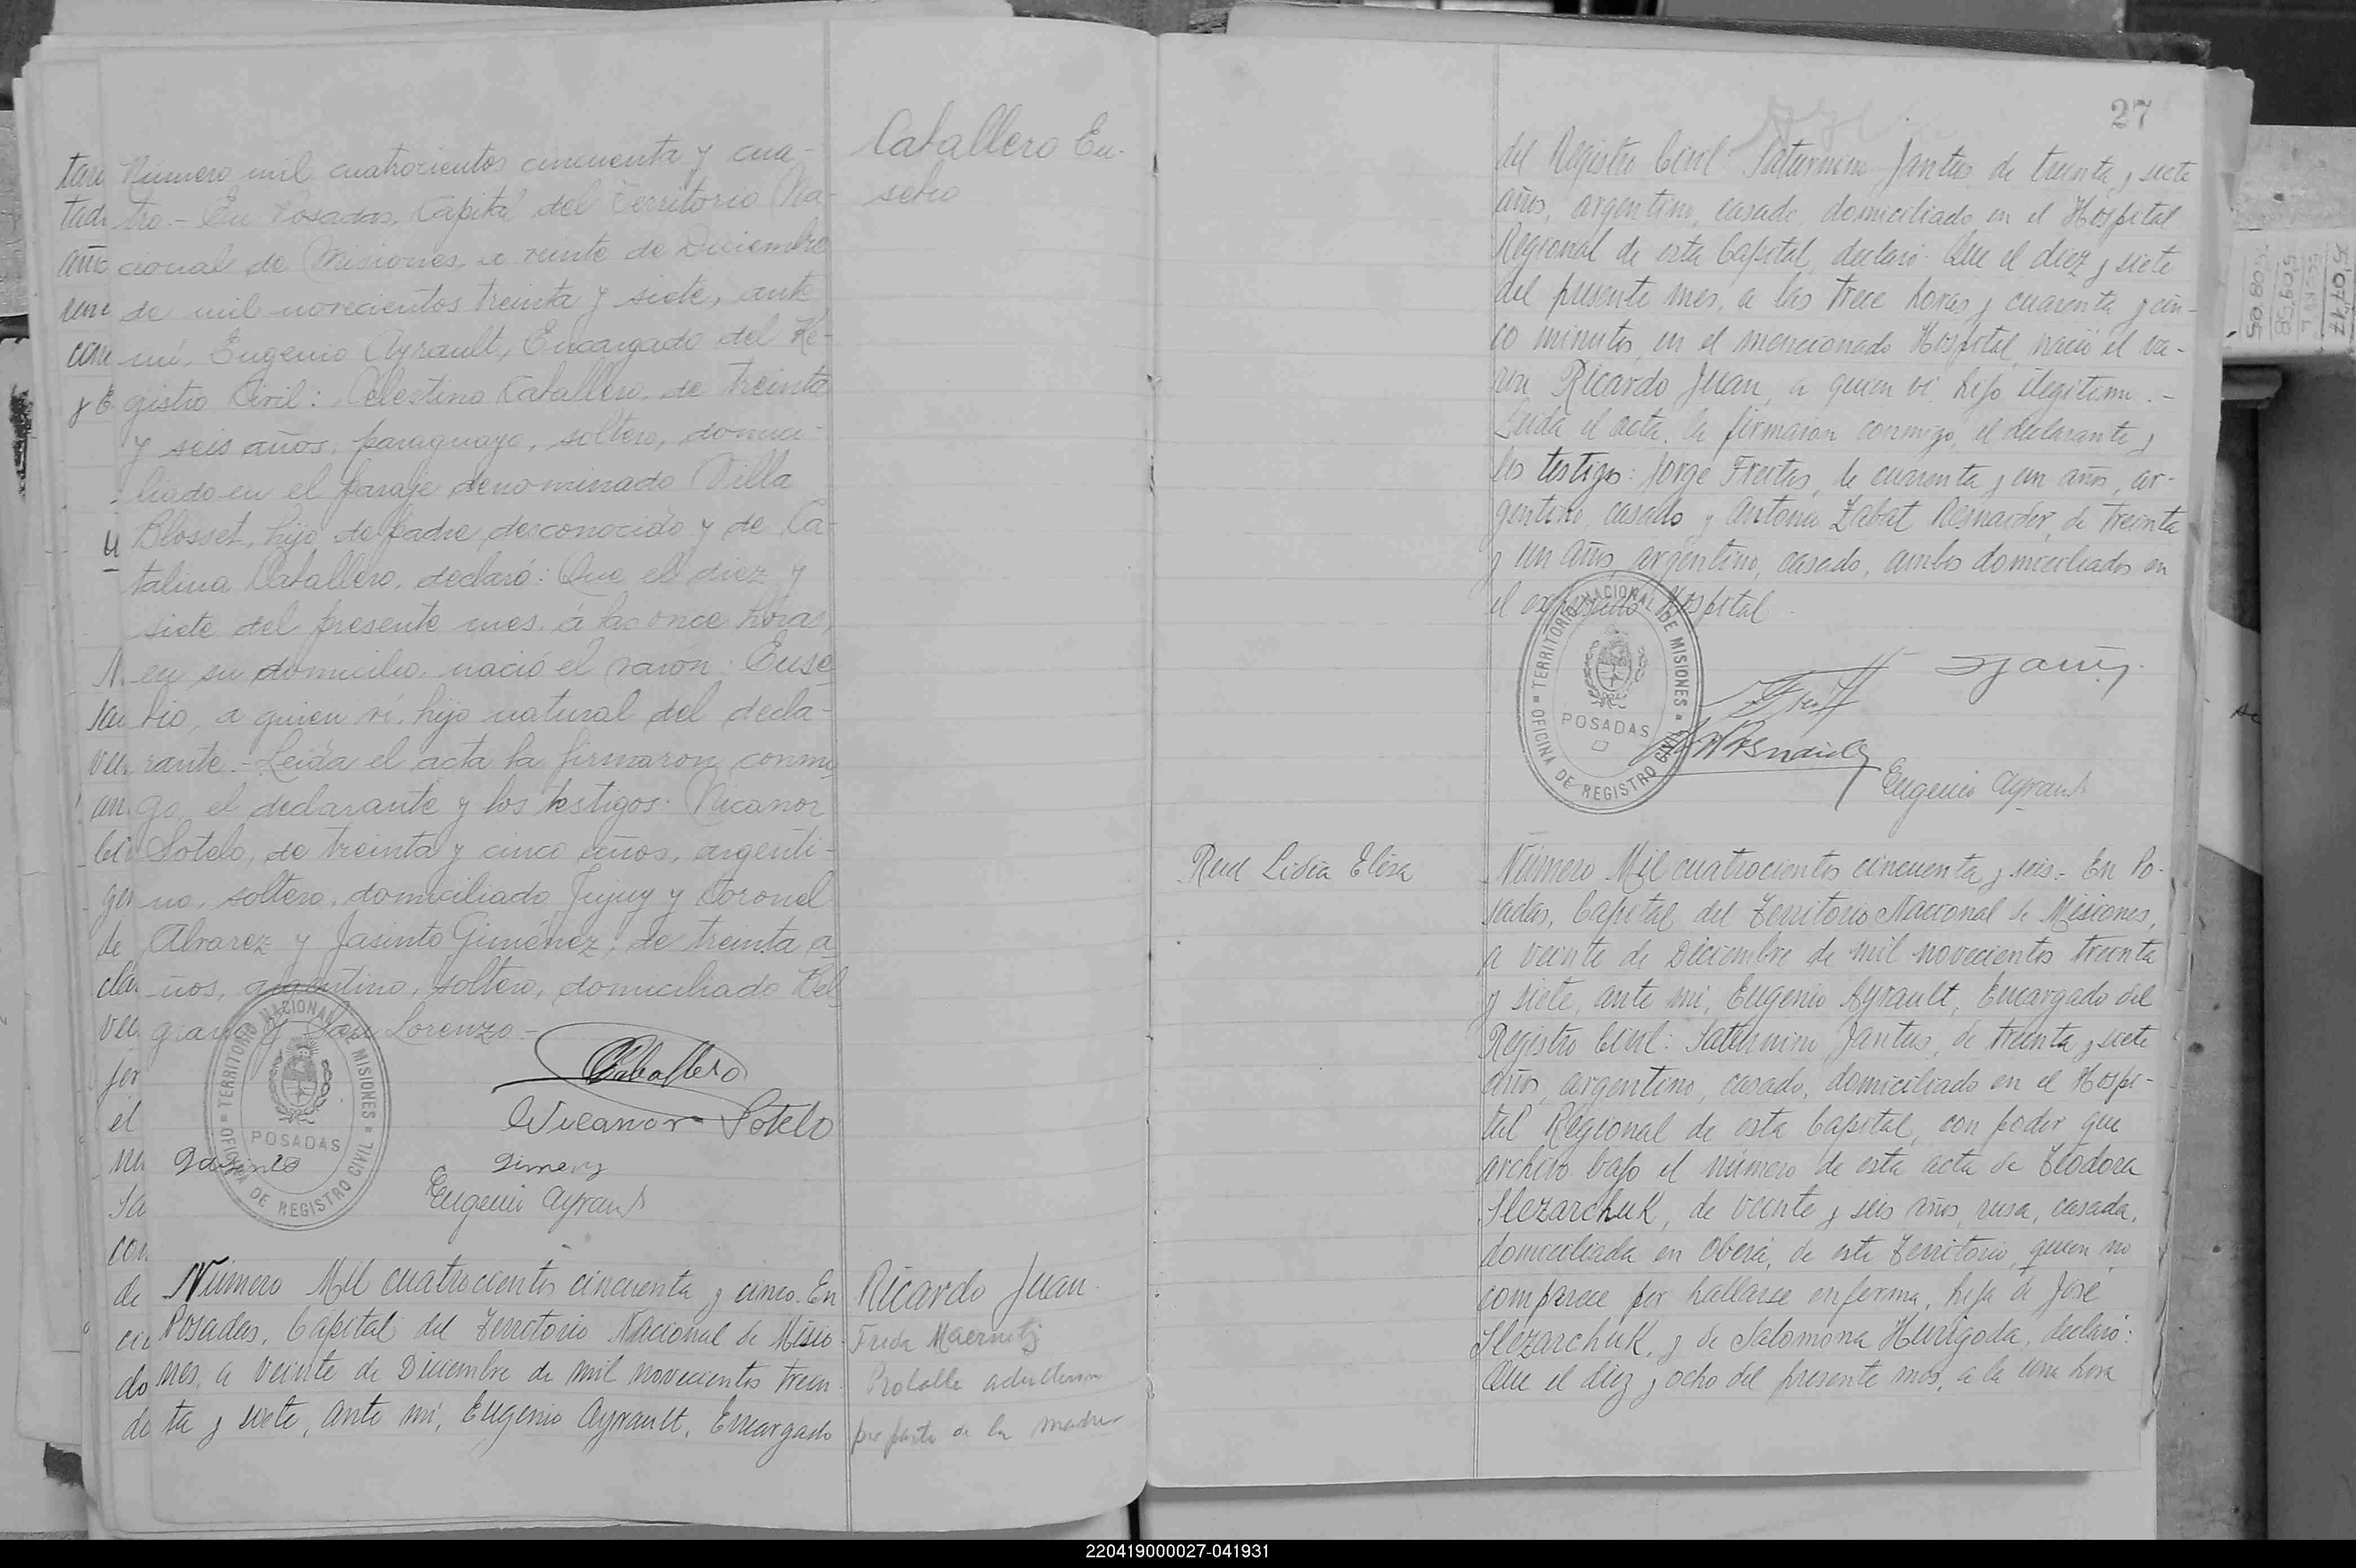 Caballero Eu-
sebio
Número mil cuatrocientos cincuenta y cua-
tro.- En Posadas, Capital del Territorio Na-
cional de Misiones, a veinte de Diciembre
de mil novecientos treinta y siete, ante
mí, Eugenio Ayrault, Encargado del Re-
gistro Civil: Celestino Caballero, de treinta
y seis años, paraguayo, soltero, domici-
liado en el paraje denominado Villa
Blosset, hijo de padre desconocido y de Ca-
talina Caballero, declaró: Que el diez y
siete del presente mes, á las once horas,
en su domicilio, nació el varón: Euse
bio, a quien ví, hijo natural del decla-
rante.- Leída el acta la firmaron conmi
go el declarante y los testigos: Nicanor
Sotelo, de treinta y cinco años, argenti-
no, soltero, domiciliado Jujuy y Coronel
Alvarez y Jasinto Giménez, de treinta a
ños, argentino, soltero, domiciliado Bel
grano y San Lorenzo.-
CCaballero
Nicanor Sotelo
Jasinto Gimenz
Eugenio Ayrault
TERRITORIO NACIONAL DE MISIONES
POSADAS
OFICINA DE REGISTRO CIVIL
Ricardo Juan.
Frida
Probable adulterino
por parte de la madre
Número Mil cuatrocientos cincuenta y cinco. En
Posadas, Capital del Territorio Nacional de Misio-
nes, a veinte de Diciembre de mil novecientos trein-
ta y siete, ante mí, Eugenio Ayrault, Encargado
27
del Registro Civil: Saturnino Jantus, de treinta y siete
años, argentino, casado, domiciliado en el Hospital
Regional de esta Capital, declaró: Que el diez y siete
del presente mes, a las trece horas y cuarenta y cin-
co minutos, en el mencionado Hospital, nació el va-
ron Ricardo Juan, a quien ví, hijo ilegítimo.-
Leída el acta, la firmaron conmigo, el declarante y
los testigos: Jorge Freitas, de cuarenta y un años, ar-
gentino, casado y Antonio Zabat Resnaider, de treinta
y un años, argentino, casado, ambos domiciliados en
el expresado Hospital.
TERRITORIO NACIONAL DE MISIONES
POSADAS
OFICINA DE REGISTRO CIVIL
Eugenio Ayrault
Lidia Elisa
Número Mil cuatrocientos cincuenta y seis.- En Po-
sadas, Capital del Territorio Nacional de Misiones,
a veinte de Diciembre de mil novecientos treinta
y siete, ante mí, Eugenio Ayrault, Encargado del
Registro Civil: Saturnino Jantus, de treinta y siete
años, argentino, casado, domiciliado en el Hospi-
tal Regional de esta Capital, con poder que
archivo bajo el número de esta acta de Teodora
Slezarchuk, de veinte y seis años, rusa, casada,
domiciliada en Oberá, de este Territorio, quien no
comparece por hallarse enferma, hija de José
Slezarchuk, y de Salomona Hurigoda, declaró:
Que el diez y ocho del presente mes, a la una hora
220419000027-041931